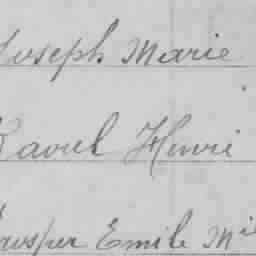 Joseph Marie
Raoul Henri
Gaspar Emile Mie